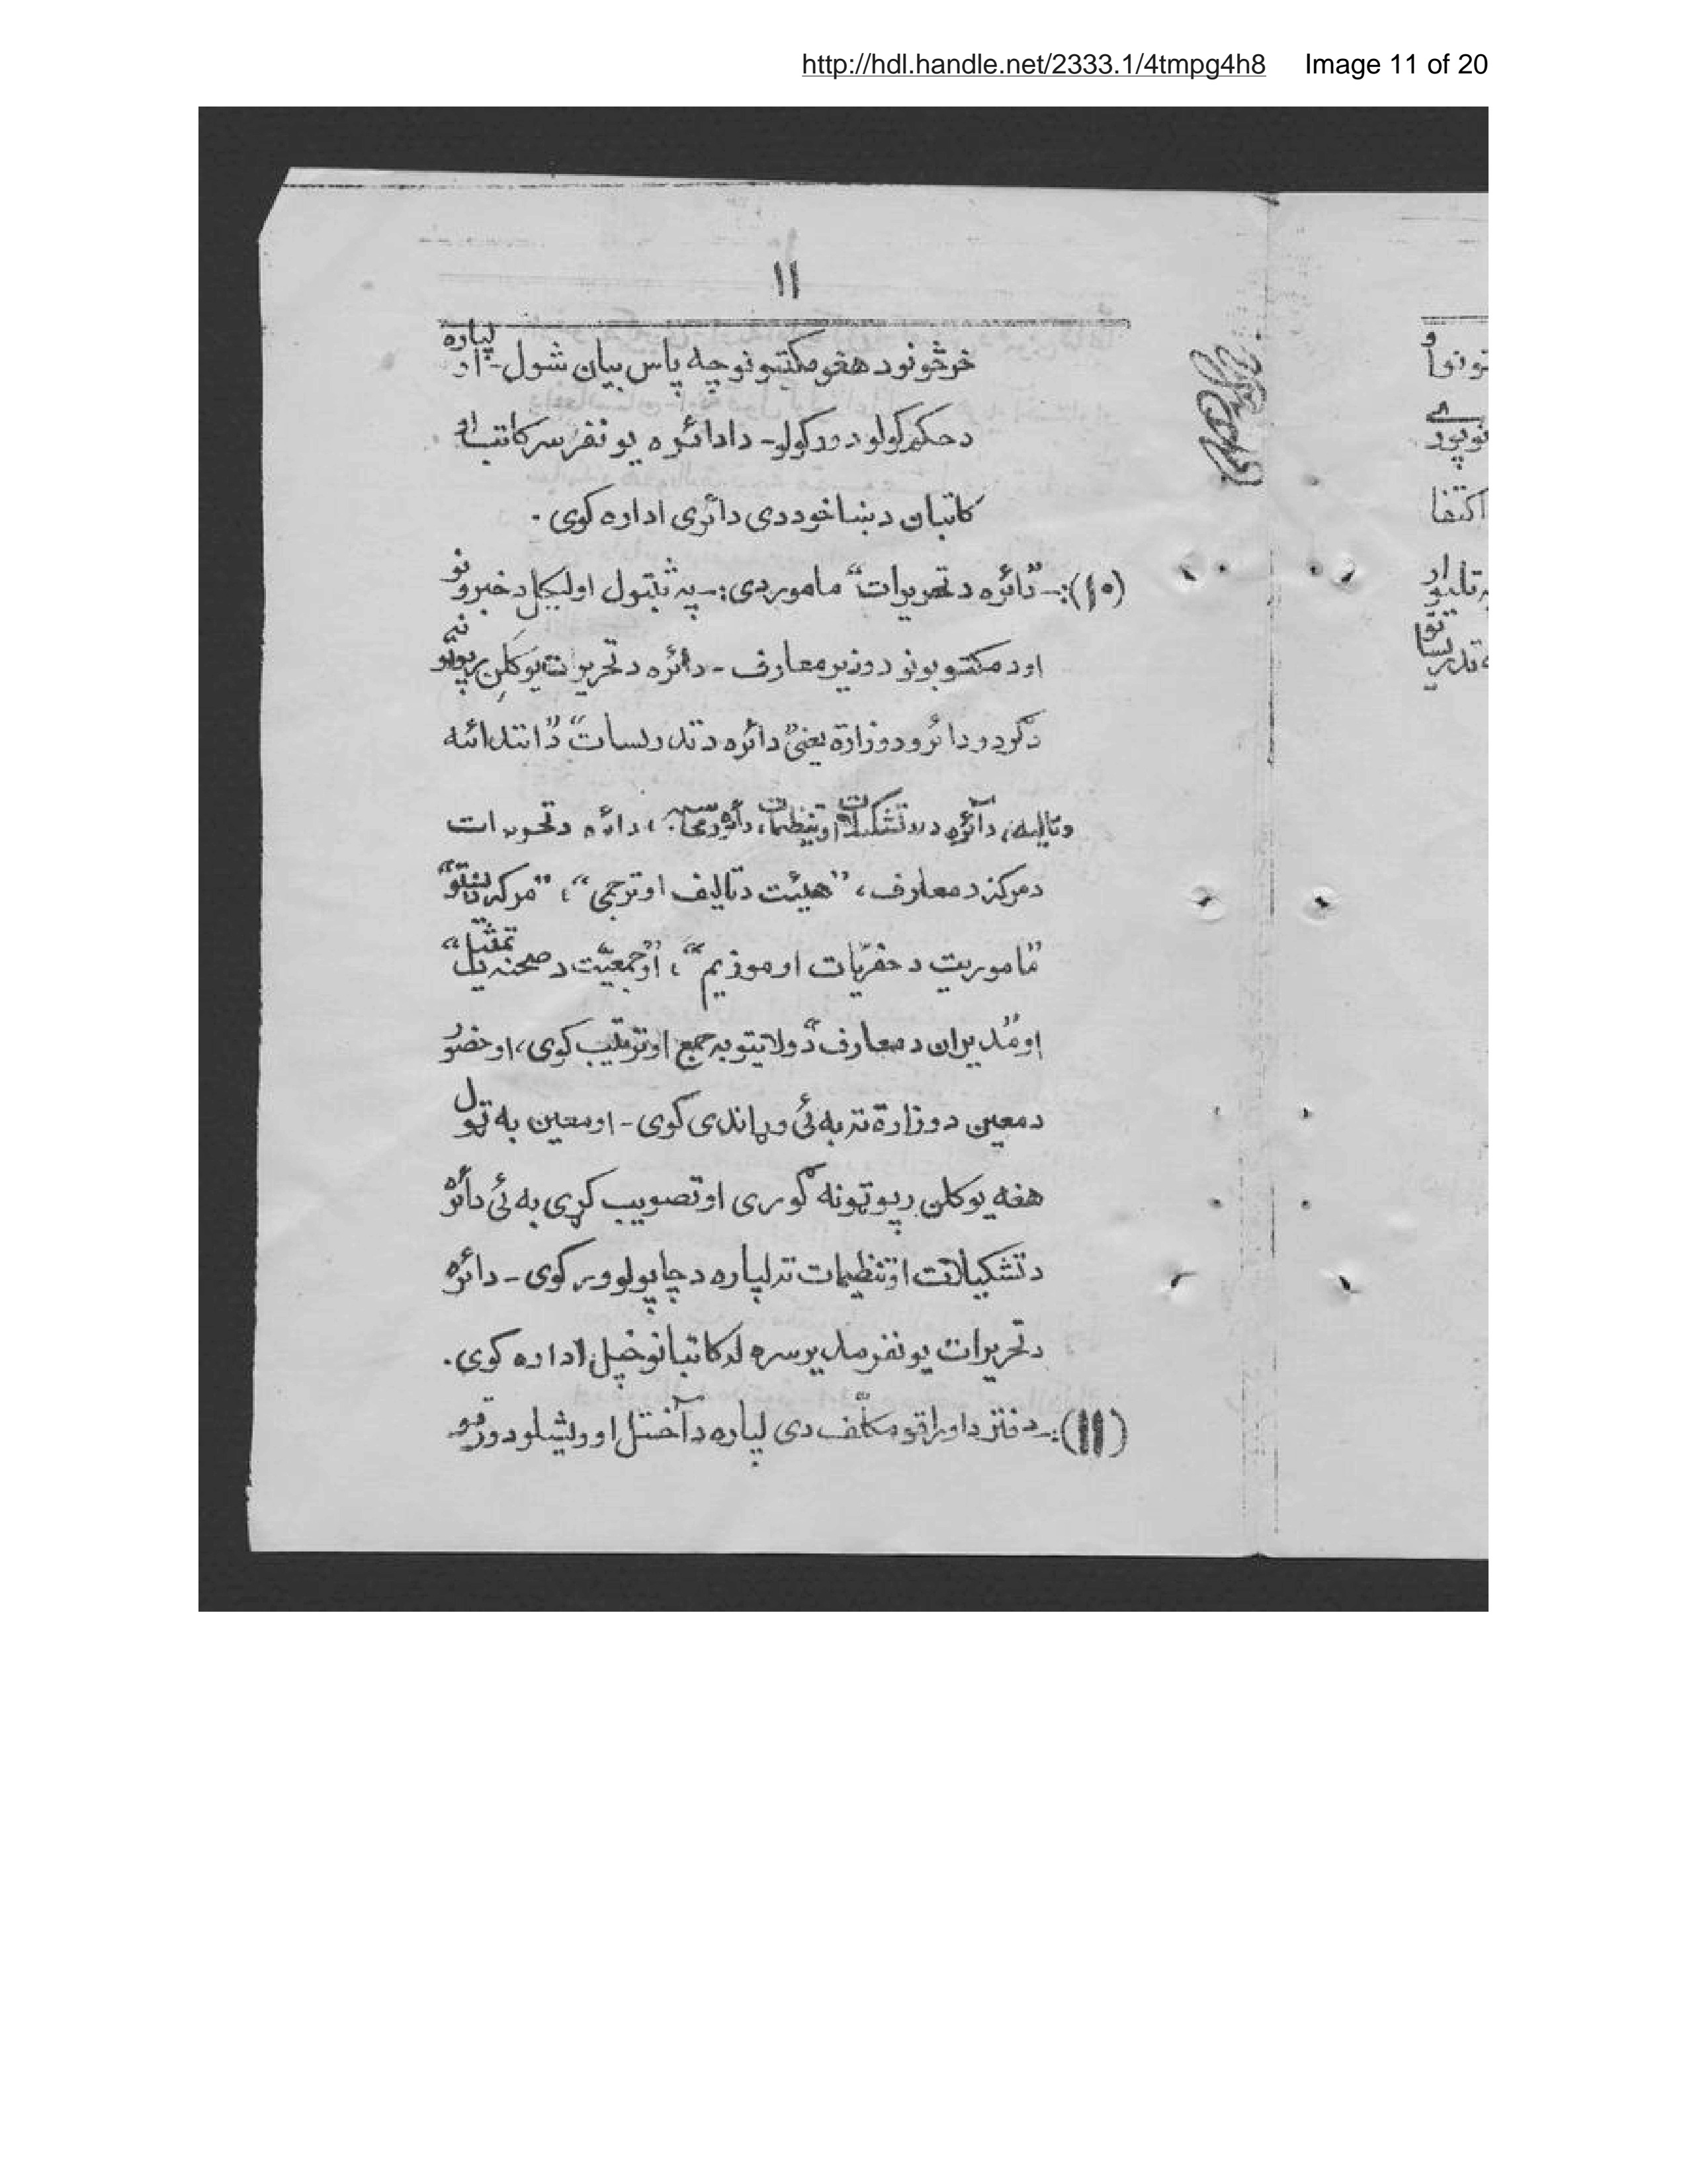 http://hdl.handle.net/2333.1/4tmpg4h8 Image 11 of 20
۱۱
خرڅونو د هغو مکتبونو چه پاس بیان شول - او لپاره
د حکم کولو د ورکولو - دا دائره یو نفر سرکاتب او
کاتبان د ښاخو د دی دائری اداره کوی .
(۱۰):- "دائره د تحریرات" مامور دی :- په ثبتول او لیکل د خبرونو
او د مکتوبونو د وزیر معارف - دائره د تحریرات یو کلن رپوټونه
د گردو دائرو د وزارة یعنی "دائره د تدریسات" د ابتدائیه
و تالیه، دائره د تشکیلات او تنظیمات، دائره د ، دائره د تحریرات
د مرکز د معارف، "هیئت د تالیف او ترجمی"، "مرکه د پښتو"
"ماموریت د حفریات او موزیم"، او "جمعیت د صحنه تمثیل"
او "مدیران د معارف" د ولایتو به جمع او ترتیب کوی، او حضور
د معین د وزارة ته به ئی وړاندی کوی - او معین به ټول
هغه یو کلن رپوټونه گوری او تصویب کړی به ئی دائره
د تشکیلات او تنظیمات ته لپاره د چاپولو ورکوی - دائره
د تحریرات یو نفر مدیر سره له کاتبانو خپل اداره کوی .
(۱۱):- دفتر د اوراقو مکلف دی لپاره د آخستل او ویشلو د ورقو